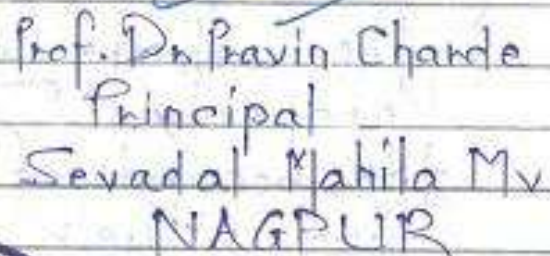 Prof. Dr. Pravin Charde
Principal
Sevadal Mahila Mv
NAGPUR